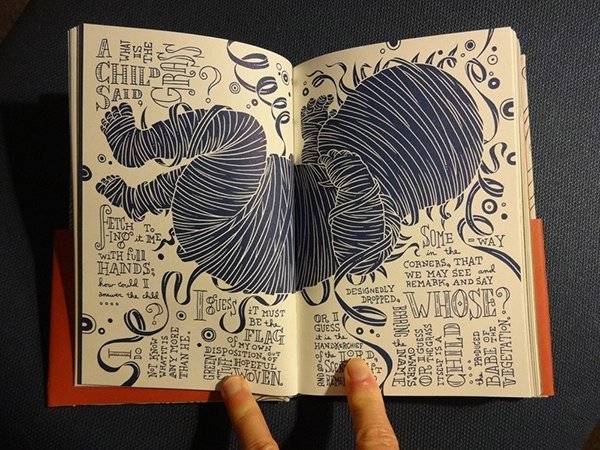 A
CHILD
SAID
WHAT
IS
THE
GRASS
?
FETCH
-ING
TO
it ME
WITH full
HANDS;
how could I
answer the child
?
I DO
NOT KNOW
WHAT IT IS
ANY MORE
THAN HE.
I GUESS
IT MUST
BE the
FLAG
OF MY OWN
DISPOSITION, OUT
OF HOPEFUL
GREEN
WOVEN.
OR I
GUESS
it is the
HANDKERCHIEF
of the LORD,
A
AND
DESIGNEDLY
DROPPED,
the NAME
SOME -WAY
in the
CORNERS, THAT
WE MAY SEE and
REMARK, AND SAY
WHOSE?
OR I GUESS
THE GRASS
ITSELF IS A
CHILD
the PRODUCED
BABE OF
the
VEGETATION.